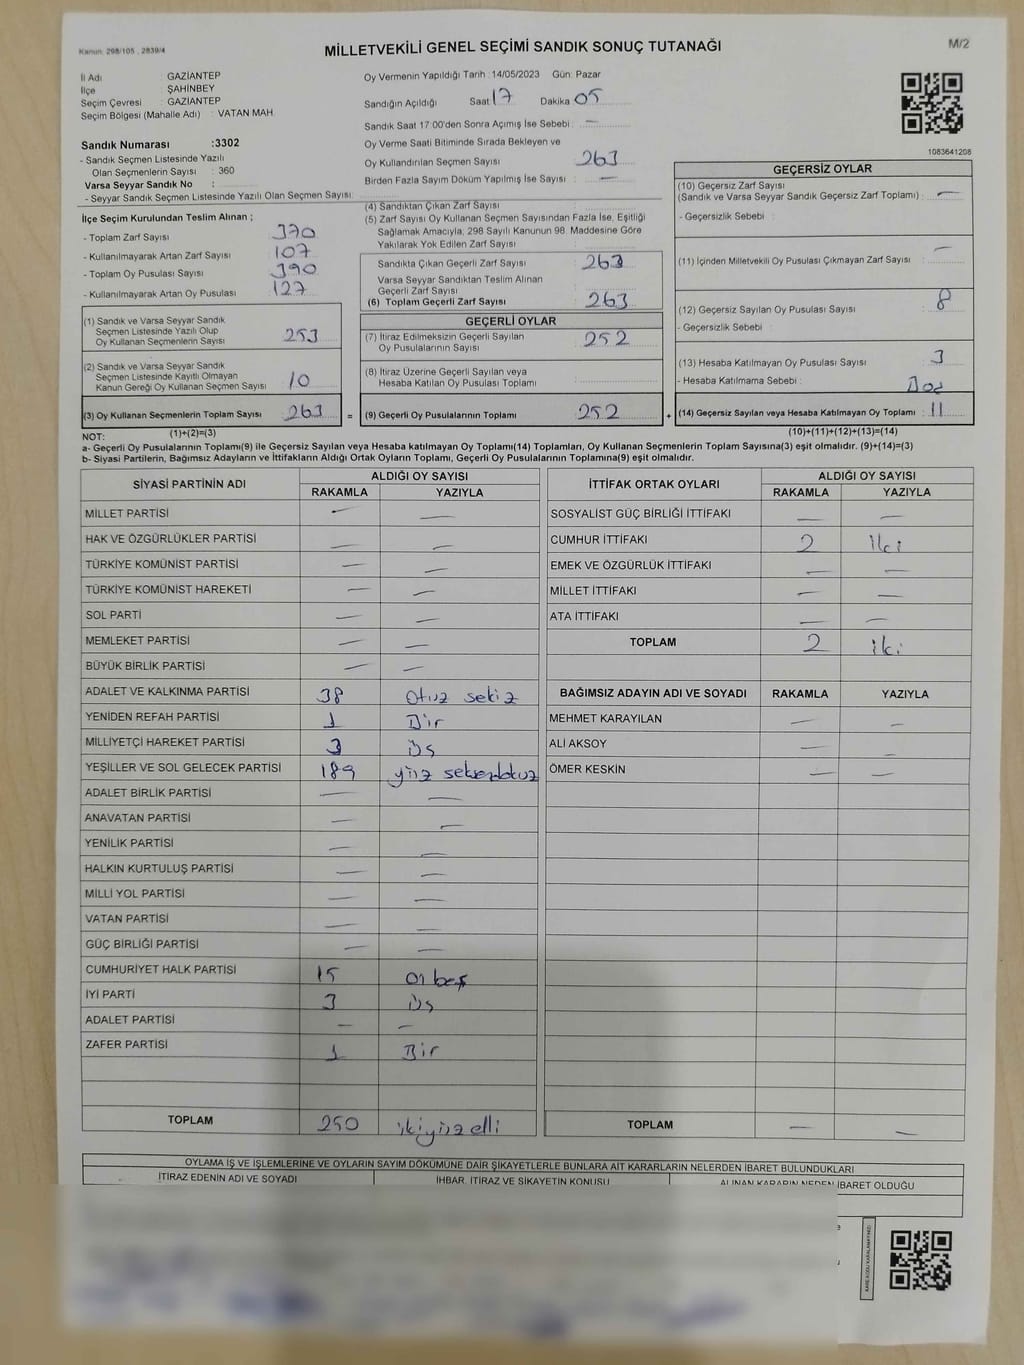 Kanun: 298/105 , 2839/4
MİLLETVEKİLİ GENEL SEÇİMİ SANDIK SONUÇ TUTANAĞI
M/2
İl Adı : GAZİANTEP
İlçe : ŞAHİNBEY
Seçim Çevresi : GAZİANTEP
Seçim Bölgesi (Mahalle Adı) : VATAN MAH.
Sandık Numarası :3302
- Sandık Seçmen Listesinde Yazılı
Olan Seçmenlerin Sayısı : 360
Varsa Seyyar Sandık No :
- Seyyar Sandık Seçmen Listesinde Yazılı Olan Seçmen Sayısı:
Oy Vermenin Yapıldığı Tarih :14/05/2023 Gün: Pazar
Sandığın Açıldığı Saat 17 Dakika 05
Sandık Saat 17:00'den Sonra Açımış İse Sebebi : —
Oy Verme Saati Bitiminde Sırada Bekleyen ve
Oy Kullandırılan Seçmen Sayısı : 263
Birden Fazla Sayım Döküm Yapılmış İse Sayısı : —
1083641208
İlçe Seçim Kurulundan Teslim Alınan ;
- Toplam Zarf Sayısı : 370
- Kullanılmayarak Artan Zarf Sayısı : 107
- Toplam Oy Pusulası Sayısı : 390
- Kullanılmayarak Artan Oy Pusulası : 127
(1) Sandık ve Varsa Seyyar Sandık
Seçmen Listesinde Yazılı Olup
Oy Kullanan Seçmenlerin Sayısı : 253
(2) Sandık ve Varsa Seyyar Sandık
Seçmen Listesinde Kayıtlı Olmayan
Kanun Gereği Oy Kullanan Seçmen Sayısı : 10
(3) Oy Kullanan Seçmenlerin Toplam Sayısı : 263
(1)+(2)=(3)
(4) Sandıktan Çıkan Zarf Sayısı :
(5) Zarf Sayısı Oy Kullanan Seçmen Sayısından Fazla İse, Eşitliği
Sağlamak Amacıyla, 298 Sayılı Kanunun 98. Maddesine Göre
Yakılarak Yok Edilen Zarf Sayısı :
Sandıkta Çıkan Geçerli Zarf Sayısı : 263
Varsa Seyyar Sandıktan Teslim Alınan
Geçerli Zarf Sayısı :
(6) Toplam Geçerli Zarf Sayısı : 263
GEÇERLİ OYLAR
(7) İtiraz Edilmeksizin Geçerli Sayılan
Oy Pusulalarının Sayısı : 252
(8) İtiraz Üzerine Geçerli Sayılan veya
Hesaba Katılan Oy Pusulası Toplamı :
= (9) Geçerli Oy Pusulalarının Toplamı : 252
GEÇERSİZ OYLAR
(10) Geçersiz Zarf Sayısı
(Sandık ve Varsa Seyyar Sandık Geçersiz Zarf Toplamı) : —
- Geçersizlik Sebebi :
(11) İçinden Milletvekili Oy Pusulası Çıkmayan Zarf Sayısı : —
(12) Geçersiz Sayılan Oy Pusulası Sayısı : 8
- Geçersizlik Sebebi :
(13) Hesaba Katılmayan Oy Pusulası Sayısı : 3
- Hesaba Katılmama Sebebi : Boş
+ (14) Geçersiz Sayılan veya Hesaba Katılmayan Oy Toplamı : 11
(10)+(11)+(12)+(13)=(14)
NOT:
a- Geçerli Oy Pusulalarının Toplamı(9) ile Geçersiz Sayılan veya Hesaba katılmayan Oy Toplamı(14) Toplamları, Oy Kullanan Seçmenlerin Toplam Sayısına(3) eşit olmalıdır. (9)+(14)=(3)
b- Siyasi Partilerin, Bağımsız Adayların ve İttifakların Aldığı Ortak Oyların Toplamı, Geçerli Oy Pusulalarının Toplamına(9) eşit olmalıdır.
SİYASİ PARTİNİN ADI ALDIĞI OY SAYISI
RAKAMLA YAZIYLA
MİLLET PARTİSİ — —
HAK VE ÖZGÜRLÜKLER PARTİSİ — —
TÜRKİYE KOMÜNİST PARTİSİ — —
TÜRKİYE KOMÜNİST HAREKETİ — —
SOL PARTİ — —
MEMLEKET PARTİSİ — —
BÜYÜK BİRLİK PARTİSİ — —
ADALET VE KALKINMA PARTİSİ 38 Otuz sekiz
YENİDEN REFAH PARTİSİ 1 Bir
MİLLİYETÇİ HAREKET PARTİSİ 3 üç
YEŞİLLER VE SOL GELECEK PARTİSİ 189 yüz seksendokuz
ADALET BİRLİK PARTİSİ — —
ANAVATAN PARTİSİ — —
YENİLİK PARTİSİ — —
HALKIN KURTULUŞ PARTİSİ — —
MİLLİ YOL PARTİSİ — —
VATAN PARTİSİ — —
GÜÇ BİRLİĞİ PARTİSİ — —
CUMHURİYET HALK PARTİSİ 15 on beş
İYİ PARTİ 3 üç
ADALET PARTİSİ — —
ZAFER PARTİSİ 1 Bir
TOPLAM 250 ikiyüz elli
İTTİFAK ORTAK OYLARI ALDIĞI OY SAYISI
RAKAMLA YAZIYLA
SOSYALİST GÜÇ BİRLİĞİ İTTİFAKI — —
CUMHUR İTTİFAKI 2 iki
EMEK VE ÖZGÜRLÜK İTTİFAKI — —
MİLLET İTTİFAKI — —
ATA İTTİFAKI — —
TOPLAM 2 iki
BAĞIMSIZ ADAYIN ADI VE SOYADI RAKAMLA YAZIYLA
MEHMET KARAYILAN — —
ALİ AKSOY — —
ÖMER KESKİN — —
TOPLAM — —
OYLAMA İŞ VE İŞLEMLERİNE VE OYLARIN SAYIM DÖKÜMÜNE DAİR ŞİKAYETLERLE BUNLARA AİT KARARLARIN NELERDEN İBARET BULUNDUKLARI
İTİRAZ EDENİN ADI VE SOYADI İHBAR, İTİRAZ VE ŞİKAYETİN KONUSU ALINAN KARARIN NEDEN İBARET OLDUĞU